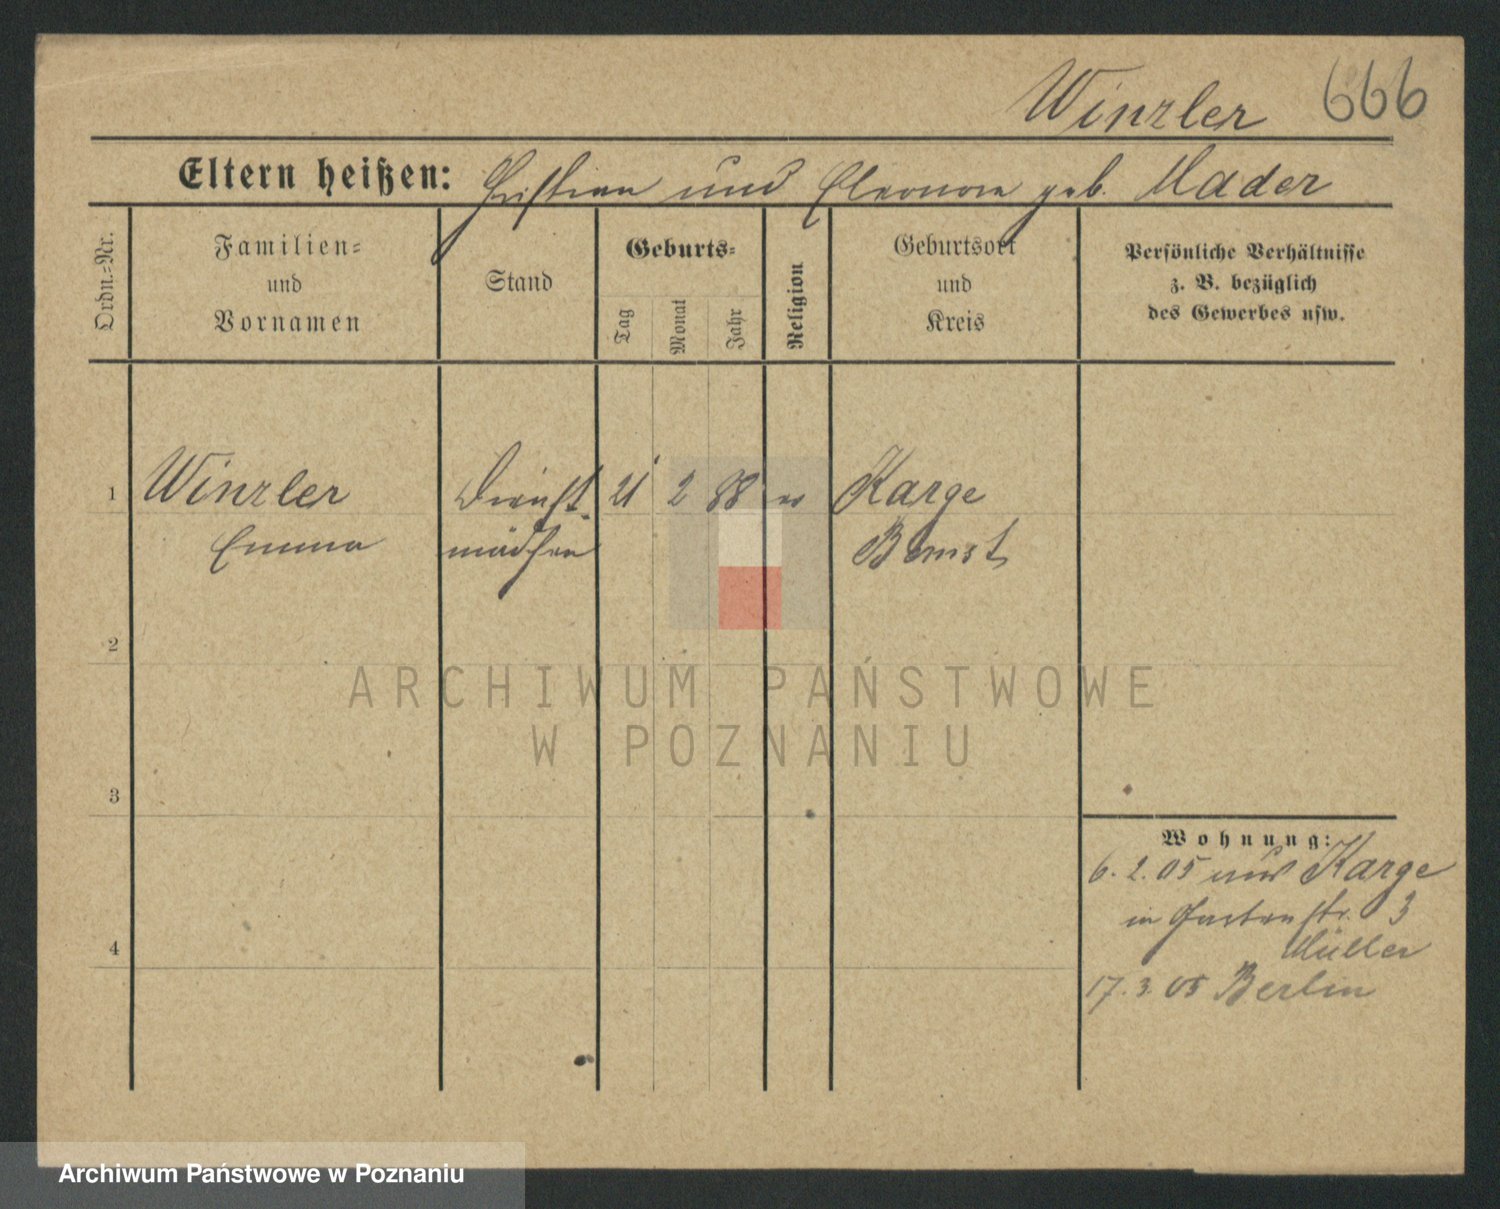 Winzler 666
Eltern heißen: Christian und Eleonore geb. Mader
Ordn.=Nr.
Familien=
und
Vornamen
Stand
Geburts=
Tag
Monat
Jahr
Religion
Geburtsort
und
Kreis
Persönliche Verhältnisse
z. B. bezüglich
des Gewerbes usw.
1 Winzler Dienst- 21 2 88 ev Karge
Emma mädchen Bomst
2
ARCHIWUM PAŃSTWOWE
W POZNANIU
3
Wohnung:
6. 2. 05 aus Karge
in Gartenstr. 3
4
Müller
17. 3. 05 Berlin
Archiwum Państwowe w Poznaniu